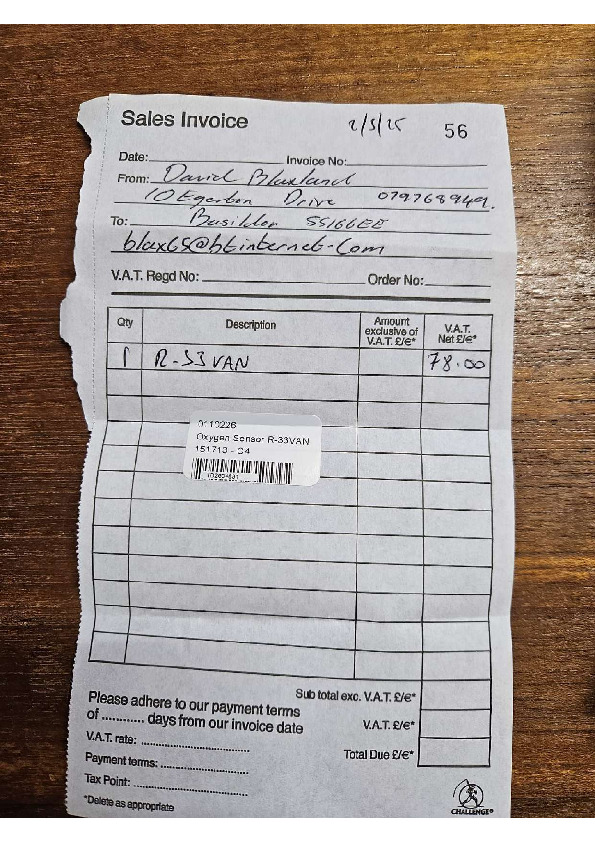 Sales Invoice
2/5/25
56
Date:
Invoice No:
From: David Blaxland
10 Egerton Drive
To: Basildon SS166EE
blax65@btinternet.com
V.A.T. Regd No:
Order No:
Qty Description Amount exclusive of V.A.T. £/€* V.A.T. Net £/€*
1 R-33VAN 78.00
0110226
Oxygen Sensor R-33VAN
151713 - C4
Sub total exc. V.A.T. £/€*
Please adhere to our payment terms
of ............ days from our invoice date
V.A.T. £/€*
V.A.T. rate:
Total Due £/€*
Payment terms:
Tax Point:
*Delete as appropriate
CHALLENGE®